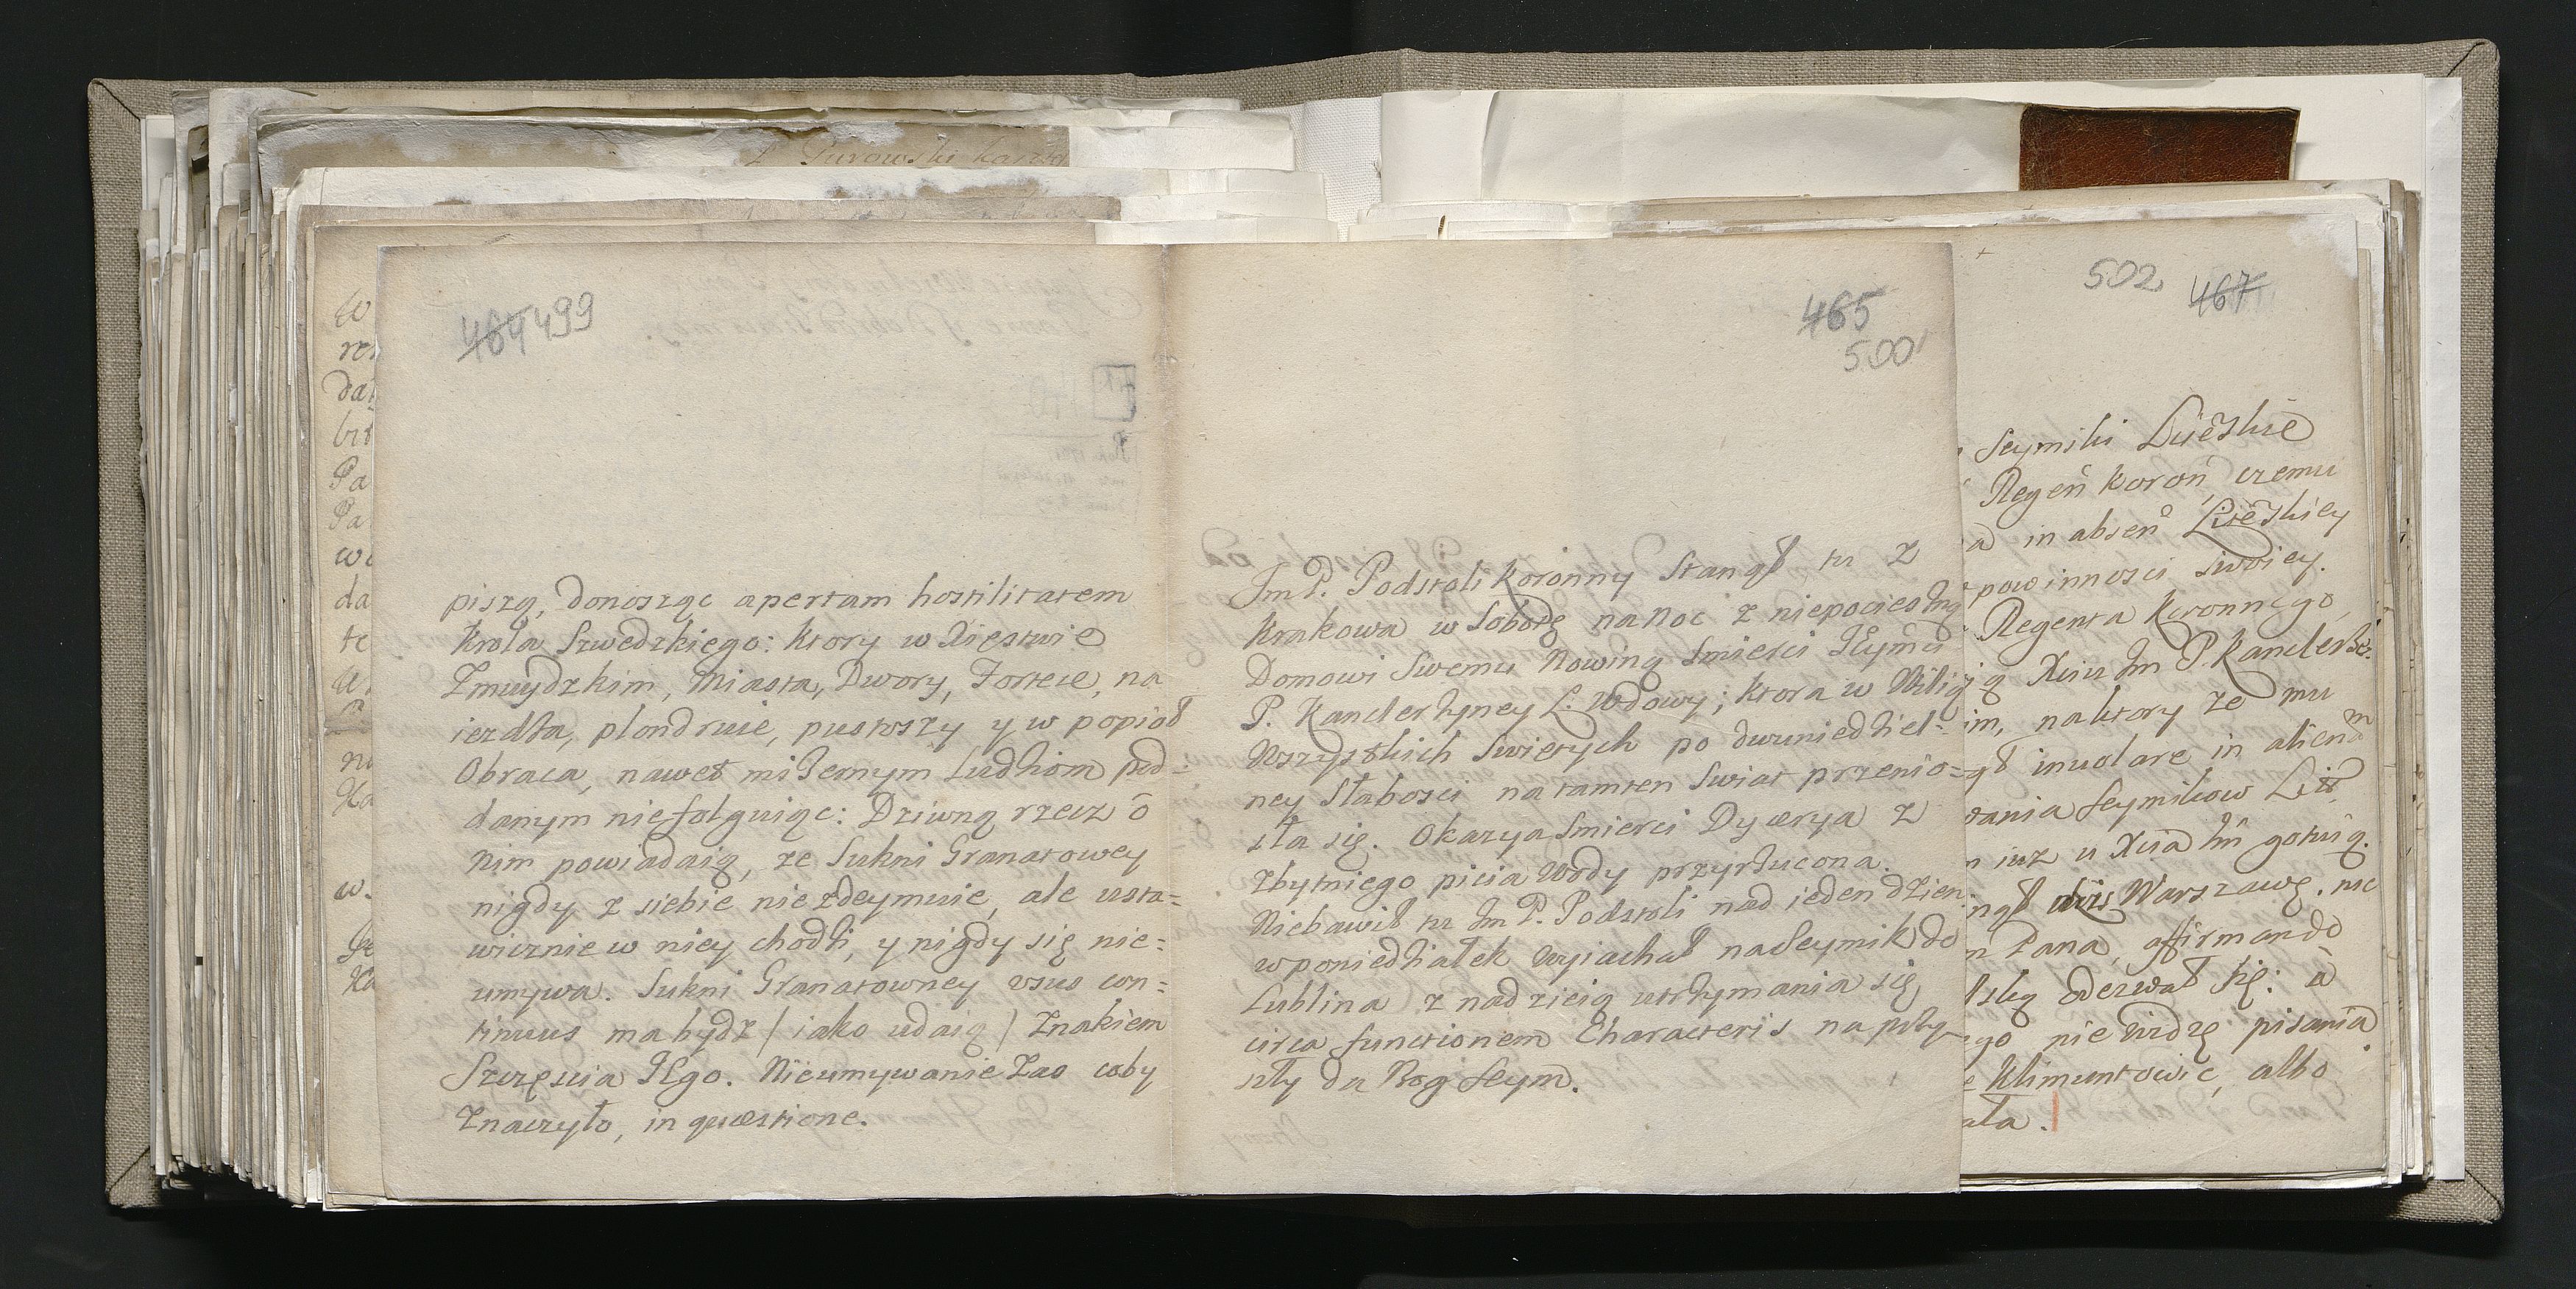 464 499
piszą, donosząc apertam hostilitatem
Krola Szwedzkiego: ktory w Xięstwie
Zmuydzkim, Miasta, Dwory, Fortece, na
iezdża, plondruie, pustoszy y w popioł
Obraca, nawet mizernym Ludziom pod-
danym niefolguiąc: Dziwną rzecz o
nim powiadaią, ze Sukni Granatowey
nigdy z siebie niezdeymuie, ale usta-
wicznie w niey chodzi, y nigdy się nie-
umywa. Sukni Granatowney usus con-
tinuus ma bydz / iako udaią / Znakiem
Szczęscia Jego. Nieumywanie Zas coby
Znaczyło, in quæstione.
465
500
Jm P. Podstoli Koronny Stanął tu z
Krakowa w Sobotę na Noc z niepocieszną
Domowi Swemu Nowiną Smierci Jeymci
P. Kanclerzyney L. Wdowy; ktora w Wilią
Wszystkich Swiętych po dwuniedziel-
ney Słabosci na tamten Swiat przenio-
sła się. Okazya Smierci Dyærya z
zbytniego picia Wody przyrzucona.
Niebawił tu Jm P. Podstoli nad ieden dzien
w poniedziałek wyiachał na Seymik do
Lublina z nadzieią utrzymania się
circa functionem Characteris na przy-
szły da Bog Seym.
502 467
Seymiki
Regen Koron czemu
a in absen
powinnosci swoiey.
Regenta Koronnego
Xcia Jm P. Kanclerza
im, naktory ze mu
involare in alienam
Seymikow Litt
iuz u Xcia Jm gotuią.
Warszawę. nic
Pana, affirmando
oderwał się: a
nie widzę pisania
Klimuntowic, albo